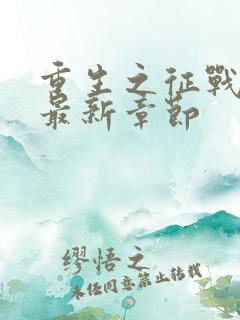 重生之征戰
最新章節
繆悟之
未经同意禁止转载